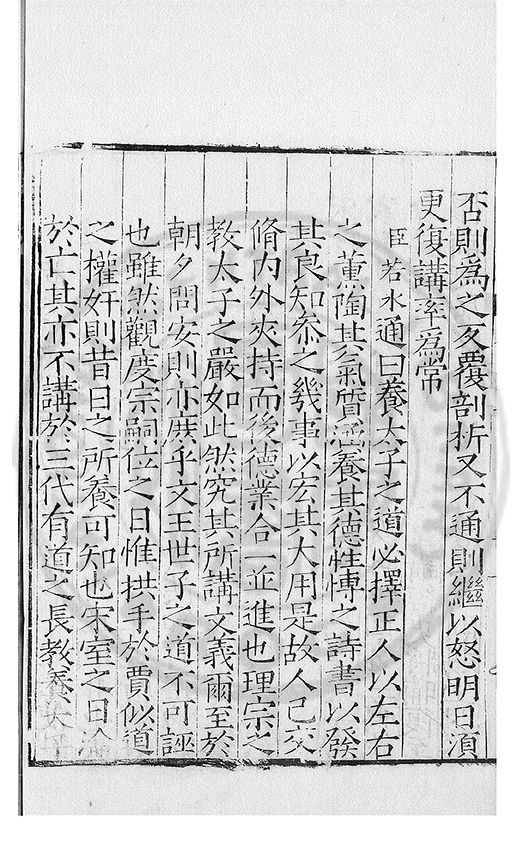 否則為之反覆剖析又不通則繼以怒明日湏
更復講率為常
臣若水通曰養太子之道必擇正人以左右
之薫陶其氣質涵養其德性愽之詩書以發
其良知叅之幾事以宏其大用是故人已交
脩内外夾持而後德業合一並進也理宗之
教太子之嚴如此然究其所講文義爾至於
朝夕問安則亦庻乎文王世子之道不可誣
也雖然觀度宗嗣位之日惟拱手於賈似道
之權奸則昔日之所養可知也宋室之日淪
於亡其亦不講於三代有道之長教養太子